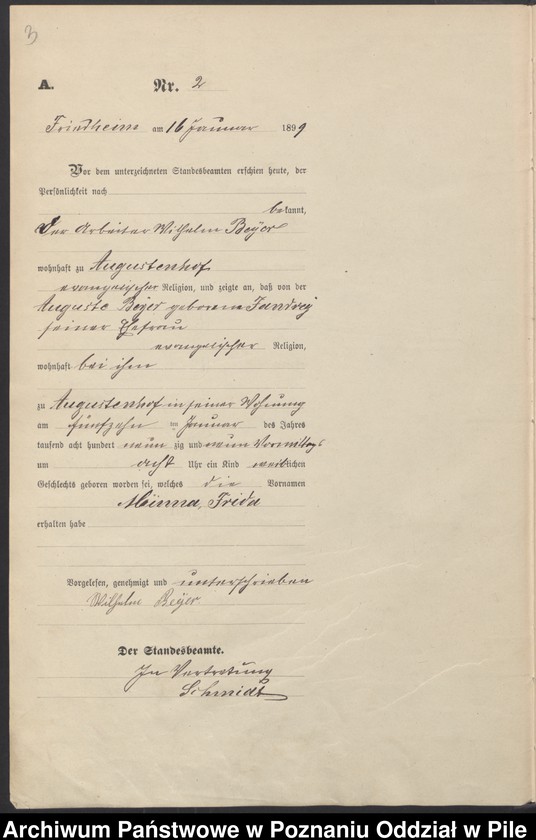 3
A. Nr. 2
Friedheim am 16 Januar 1899
Vor dem unterzeichneten Standesbeamten erschien heute, der
Persönlichkeit nach
bekannt,
Der Arbeiter Wilhelm Beÿer
wohnhaft zu Augustenhof
evangelischer Religion, und zeigte an, daß von der
Auguste Beÿer geborene Jandreÿ
seiner Ehefrau
evangelischer Religion,
wohnhaft bei ihm
zu Augustenhof in seiner Wohnung
am fünfzehn ten Januar des Jahres
tausend acht hundert neun zig und neun Vormittags
um acht Uhr ein Kind weiblichen
Geschlechts geboren worden sei, welches die Vornamen
Minna, Frida
erhalten habe
Vorgelesen, genehmigt und unterschrieben
Wilhelm Beÿer
Der Standesbeamte.
In Vertretung
Schmidt
Archiwum Państwowe w Poznaniu Oddział w Pile